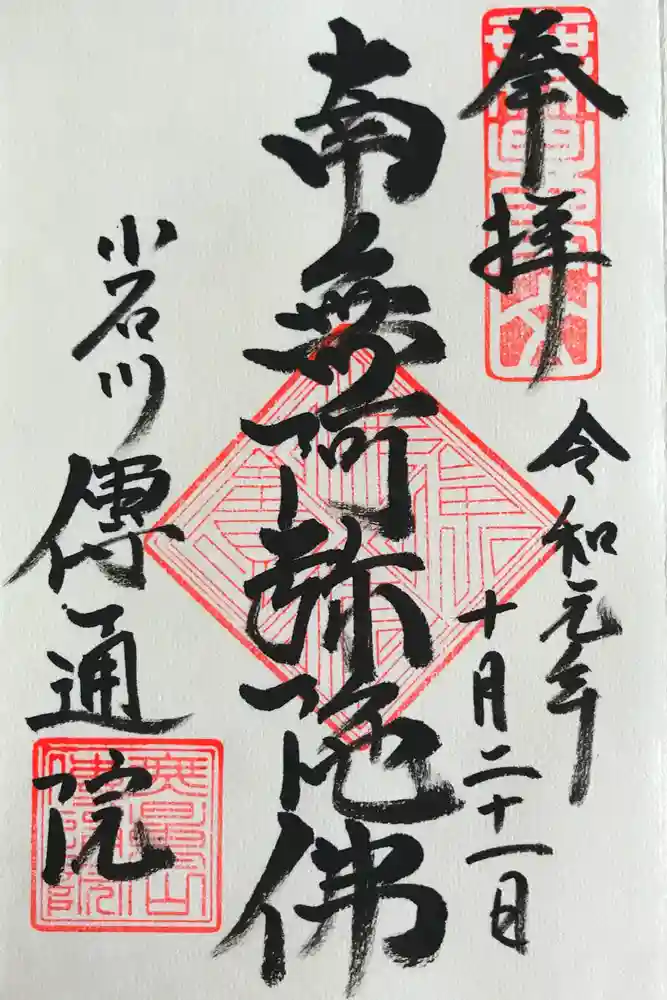 奉拝
令和元年
十月二十一日
南無阿弥陀佛
小石川
傳通院
無量山
傳通院